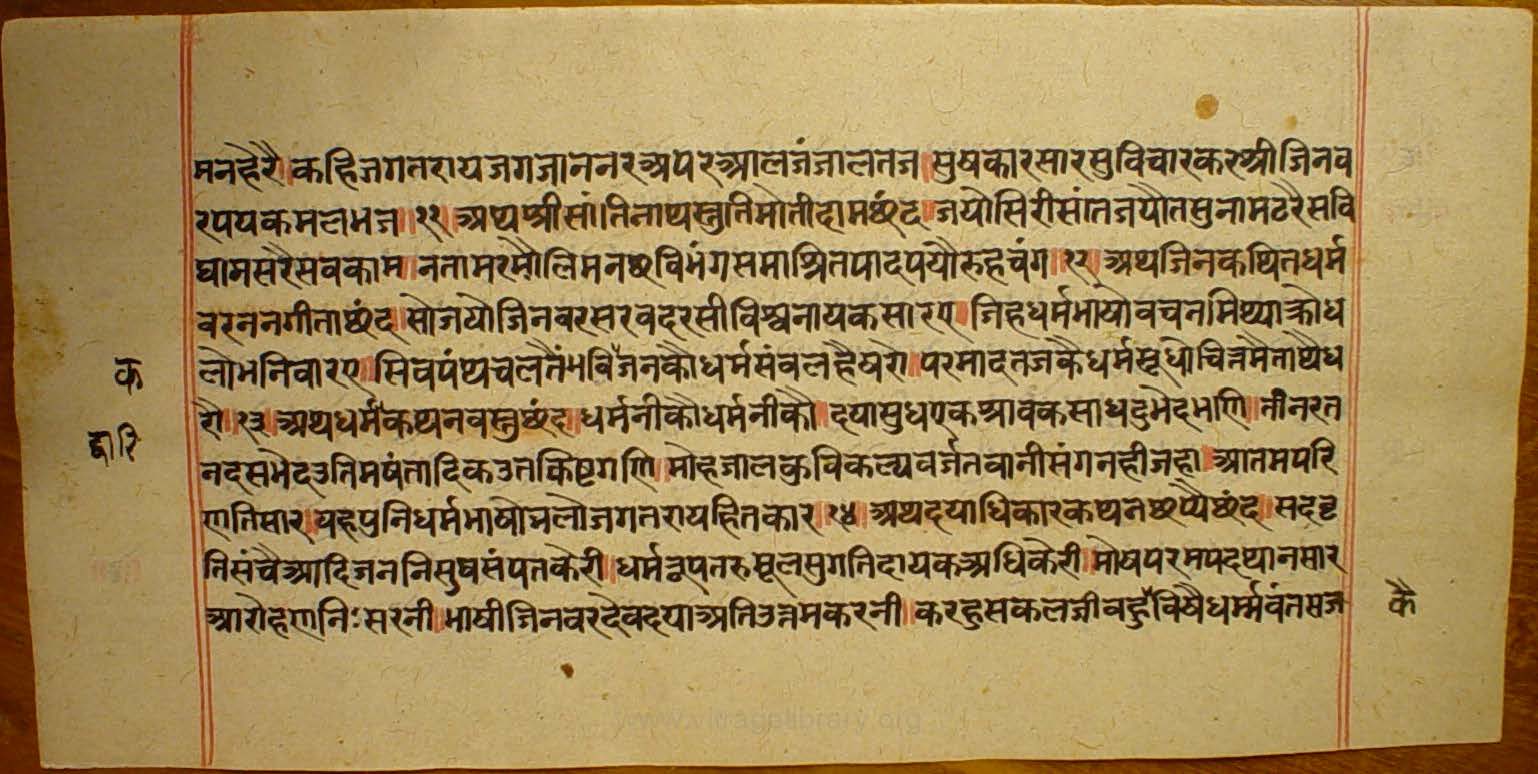 मनहेरै।कहिजगतरायजगजाननरअपरआलजंजालतज।सुषकारसारसुविचारकरश्रीजिनव
रपयकमलभज।११।अथश्रीसांतिनाथस्तुतिमोतीदामछंद।जयौसिरीसांतजयौतसुनामटरैसवि
घामसरैसवकाम।नतामरमौलिमनछविभंगसमाश्रितपादपयौरुहचंग।१२।अथजिनकथितधर्म
वरननगीताछंद।सोजयौजिनवरसरवदरसीविश्वनायकसारए।जिहधर्मभाष्यौवचनमिथ्याक्रोध
लोभनिवारए।सिवपंथचलतैंभविजनकौधर्मसंवलहैषरो।परमादतजकैधर्मसूधोचित्तमैताथैध
रौ।१३।अथधर्मकथनवस्तुछंद।धर्मनीकौधर्मनीकौ।दयासुधएकश्रावकसाधदुभेदभणि।तीनरत
नदसभेदउतिमषंतादिकउतकिष्टगणि।मोहजालकुविकल्पवर्जतवानीसंगनहीजहा।आतमपरि
णतिसार।यहपुनिधर्मभाष्योभलौजगतरायहितकार।१४।अथदयाधिकारकथनछप्पैछंद।सदवृ
तिसंचैआदिजननिसुषसंपतकेरी।धर्मवृषतरुमूलसुगतिदायकअधिकेरी।मोषपरमपदथानसार
आरोहणनिःसरनी।भाषीजिनवरदेवदयाअतिउत्तमकरनी।करहुसकलजीवहुँविषैधर्म्मवंतसज
क
द्वारि
कै
www.vinagelibrary.org